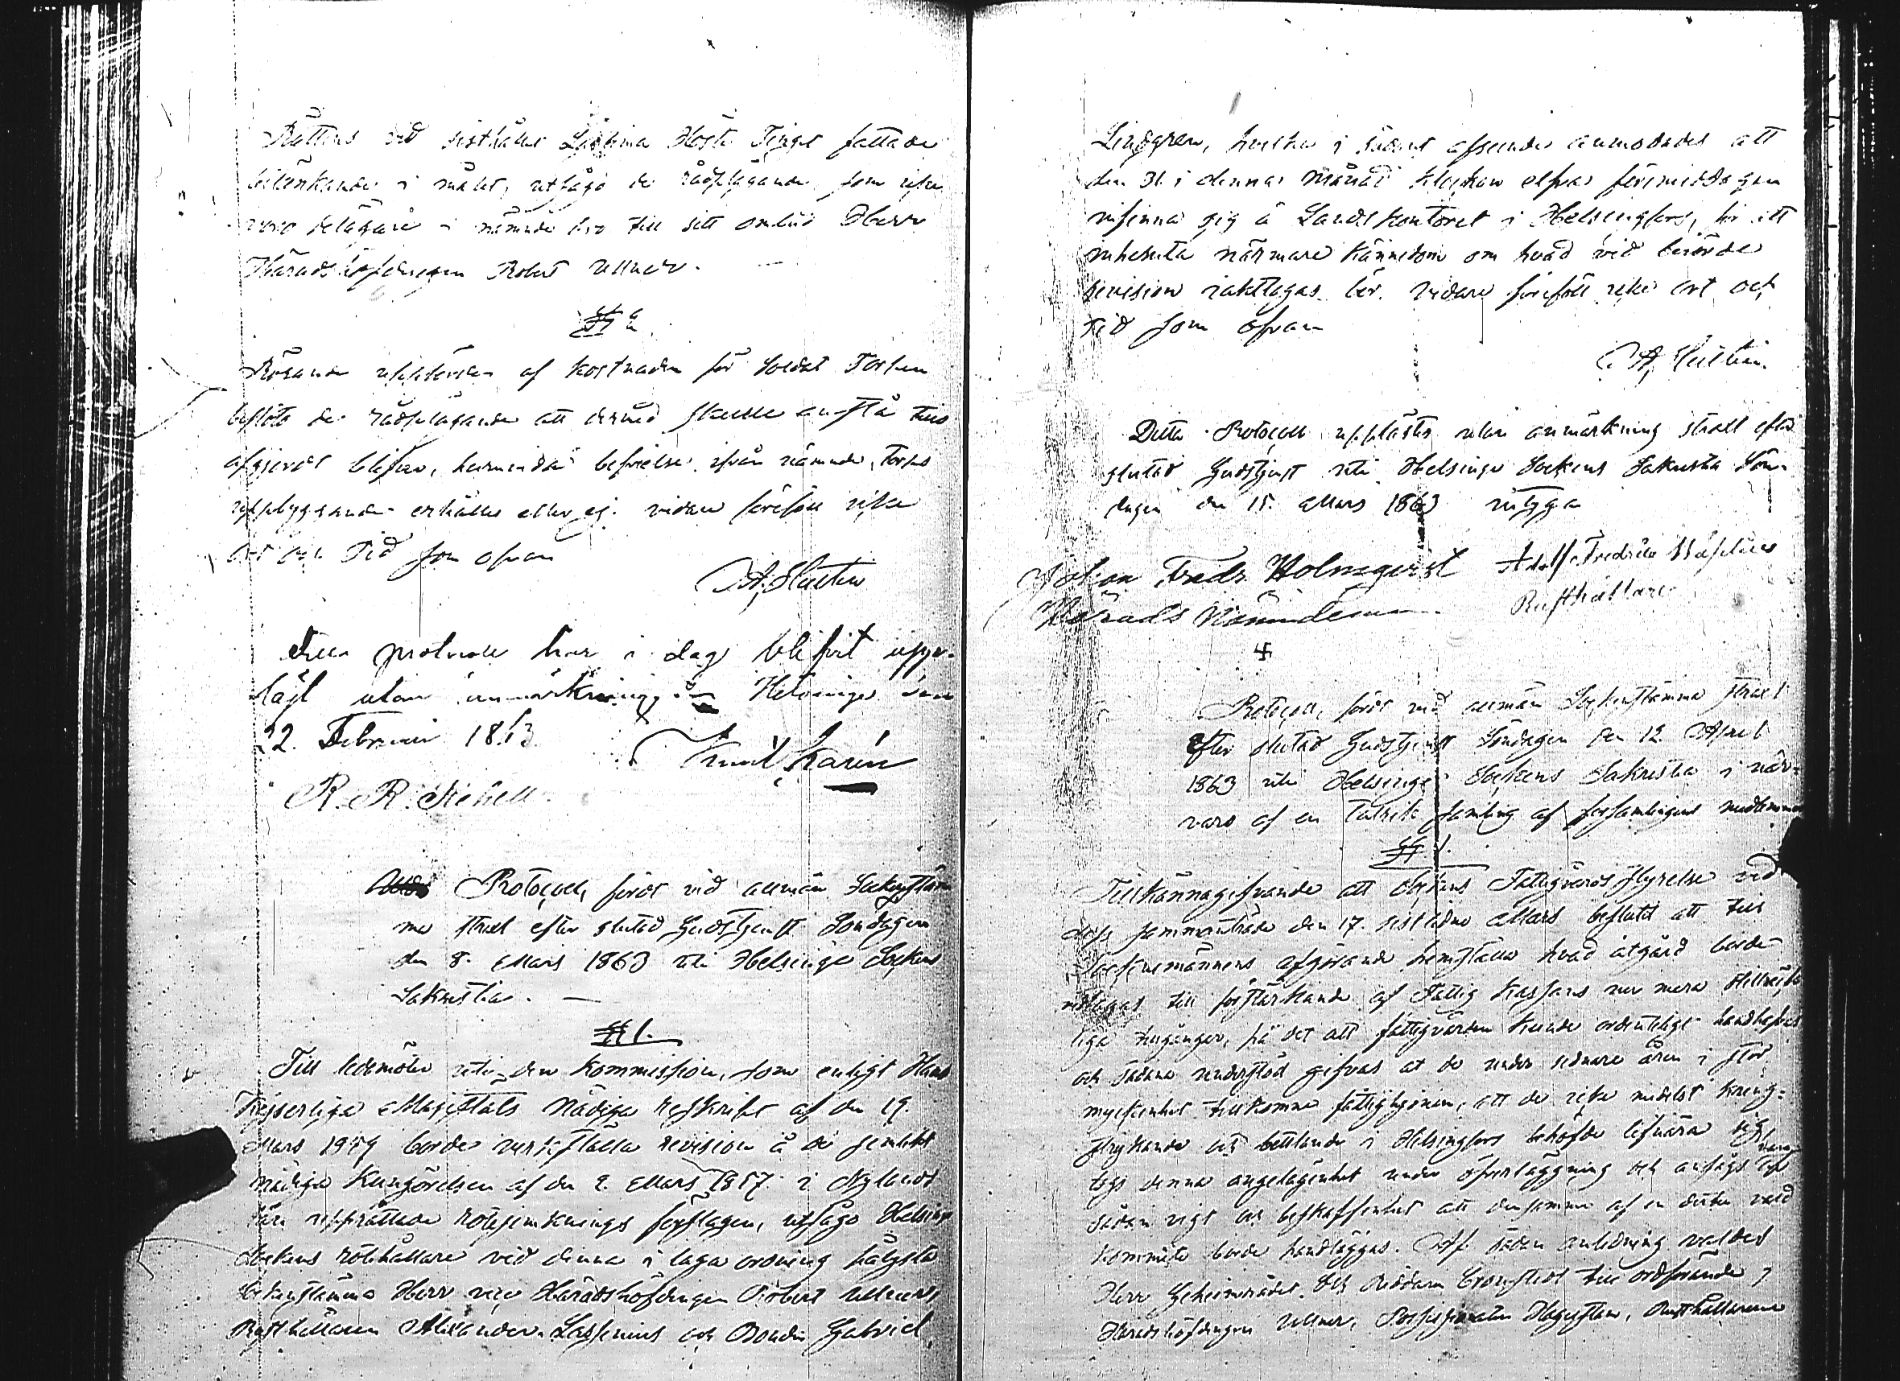 Rättens vid sisthållne Höste Tinget fattade
i målet, utsågo de rådplägande, som
delägare i nämnde till sitt ombud Herr
Häradshöfdingen Robert Ullner.
§ 2
Rörande af kostnaden för Soldat Torpen
beslöto de rådplägande att dermed skulle anstå tills
afgjordt blefve, huruvida befrielse ifrån nämnde Torps
uppbyggande erhålles eller ej. vidare förefoll icke
ort och tid som ofvan
Detta protocoll har i dag blifvit upp-
läst utan anmärkning i Helsinge den
22 Februari 1863.
Knut Karén
Protocoll, fördt vid allmän Sockenstäm-
ma straxt efter slutad Gudstjenst Söndagen
den 8. Mars 1863 uti Helsinge Sockens
Sakristia.
§ 1.
Till ledamöter uti den Kommission, som enligt Hans
Kejserliga Majestäts Nådiga reskript af den 19.
Mars 1859 borde verkställa revision å de jemlikt
nådiga Kungörelsen af den 2. Mars 1857 i Nylands
län upprättade rotejemknings förslagen, utsågo Helsinge
Sockens rotehållare vid denna i laga ordning hållna
Sockenstämma Herr vice Häradshöfdingen Robert Ullner,
Rusthållaren Alexander Lassenius och Bonden Gabriel
Lindgren, hvilka i sådant afseende anmodades att
den 31. i denna Månad klockan elfva förmiddagen
infinna sig å Landskontoret i Helsingfors, för att
inhemta närmare kännedom om hvad vid berörde
revision iakttagas bör. Vidare förefoll icke ort och
tid som ofvan
Detta Protocoll upplästes utan anmärkning straxt efter
slutad Gudstjenst uti Helsinge Sockens Sakristia Sön-
dagen den 15. Mars 1863 intyga
Johan Fredr. Holmqvist Adolf Fredrik
Härads Nämndeman. Rusthållare
Protocoll, fördt vid allmän Sockenstämma straxt
efter slutad Gudstjenst Söndagen den 12. April
1863 uti Helsinge Sockens Sakristia i när-
varo af en talrik samling af församlingens medlemmar
§ 1.
Tillkännagifvande att Sockens Fattigvårds styrelse vid
dess sammanträde den 17. sistlidne Mars beslutit att till
Sockenemännens afgörande hemställa hvad åtgärd borde
vidtagas till förstärkande af Fattig Kassans nu mera otillräck-
liga tillgångar, på det att fattigvården kunde ordentligt handhafvas
och sådane understöd gifvas åt de under sednare åren i stor
myckenhet tillkomne fattighjonen, att de icke medelst kring-
strykande och bettlande i Helsingfors behöfde lifnära sig,
togs denna angelägenhet under öfverläggning och ansågs vara af
sådan vigt och beskaffenhet att densamma af en dertill vald
kommité borde handläggas. Af sådan anledning valdes
Herr Geheimerådet och Riddaren Cronstedt till ordförande,
Häradshöfdingen Ullner, Possessionaten Rusthållarene